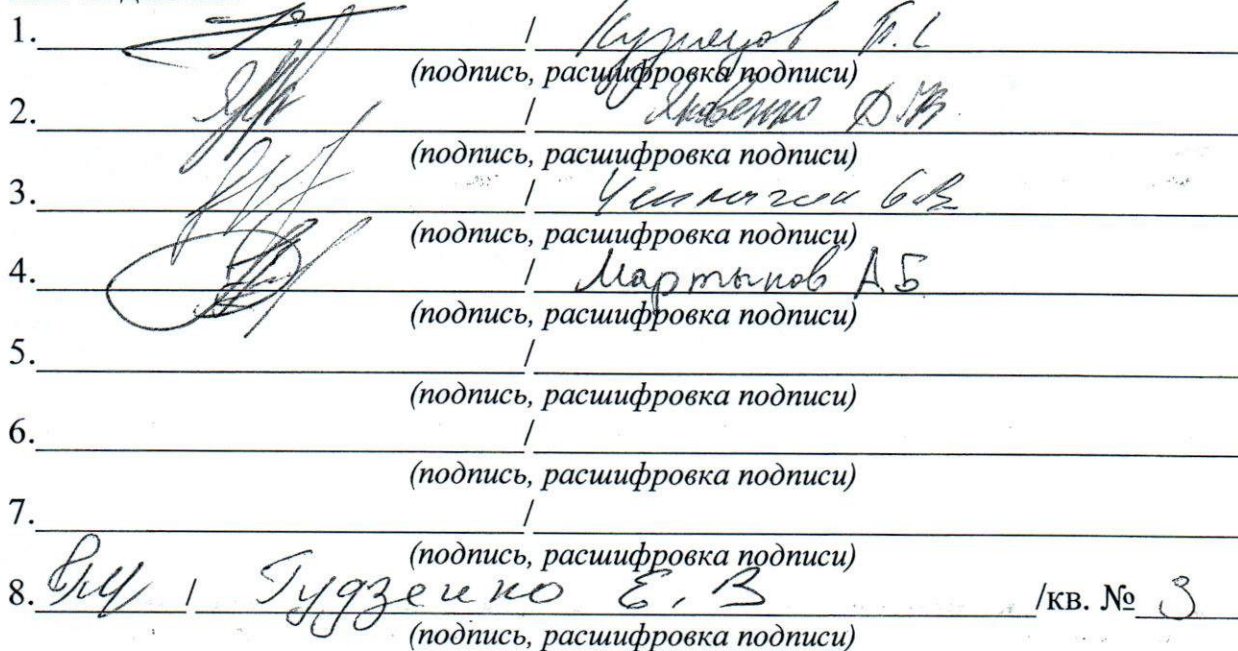 1. / Кузнецов П.С
(подпись, расшифровка подписи)
2. / Яковенко Д.
(подпись, расшифровка подписи)
3. /
(подпись, расшифровка подписи)
4. / Мартынов А.Б
(подпись, расшифровка подписи)
5. /
(подпись, расшифровка подписи)
6. /
(подпись, расшифровка подписи)
7. /
(подпись, расшифровка подписи)
8. / Гудзенко Е.В /кв. № 3
(подпись, расшифровка подписи)